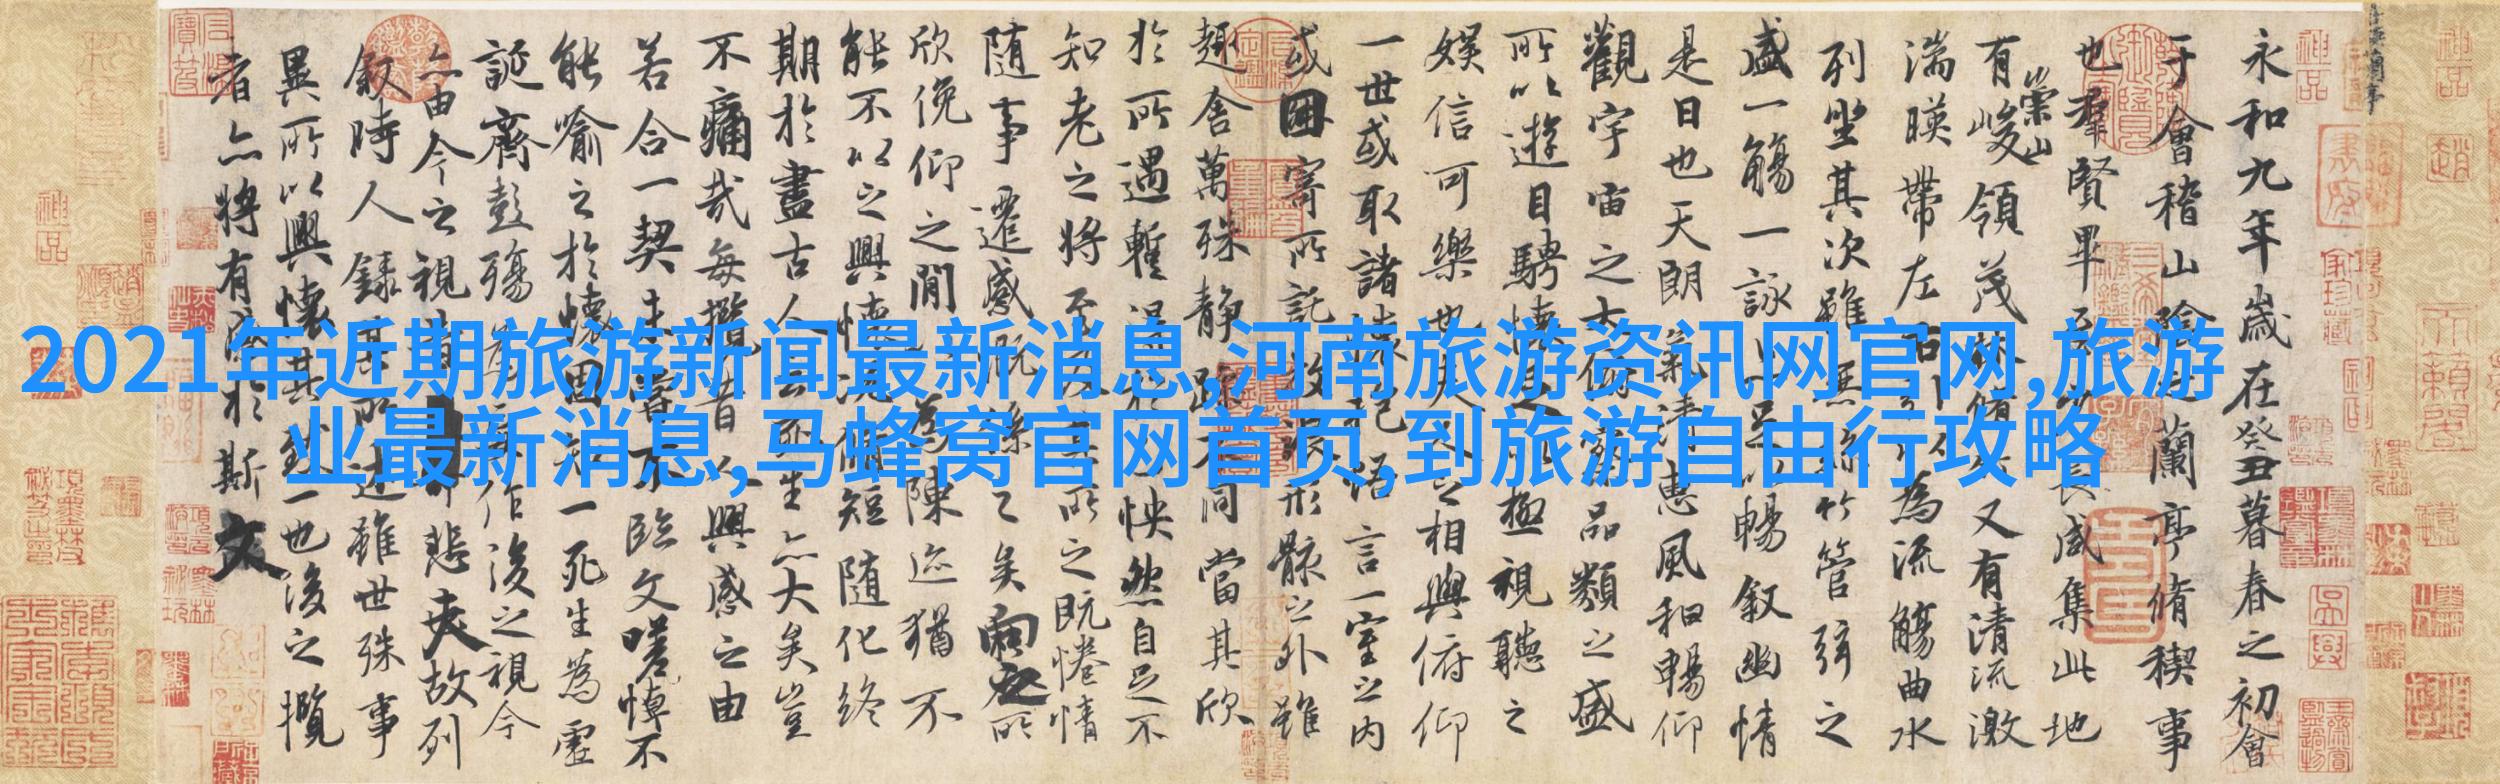 2021年近期旅游新闻最新消息,河南旅游资讯网官网,旅游
业最新消息,马蜂窝官网首页,到旅游自由行攻略
永和九年歲在癸丑暮春之初會
于會稽山陰之蘭亭脩稧事
也群賢畢至少長咸集此地
有崇山峻領茂林脩竹又有清流激
湍暎帶左右引以為流觴曲水
列坐其次雖無絲竹管弦之
盛一觴一詠亦足以暢敘幽情
是日也天朗氣清惠風和暢仰
觀宇宙之大俯察品類之盛
所以遊目騁懷足以極視聽之
娛信可樂也夫人之相與俯仰
一世或取諸懷抱悟言一室之內
或因寄所託放浪形骸之外雖
趣舍萬殊静躁不同當其欣
於所遇暫得於己怏然自足不
知老之將至及其所之既惓情
随事遷感慨係之矣向之所
欣俛仰之閒以為陳迹猶不
能不以之興懷況脩短随化終
期於盡古人云死生亦大矣豈
不痛哉每攬昔人興感之由
若合一契未嘗不臨文嗟悼不
能喻之於懷固知一死生為虛
誕齊彭殤為妄作後之視今
亦由今之視昔悲夫故列
敘時人錄其所述雖世殊事
異所以興懷其致一也後之攬
者亦將有感於斯文